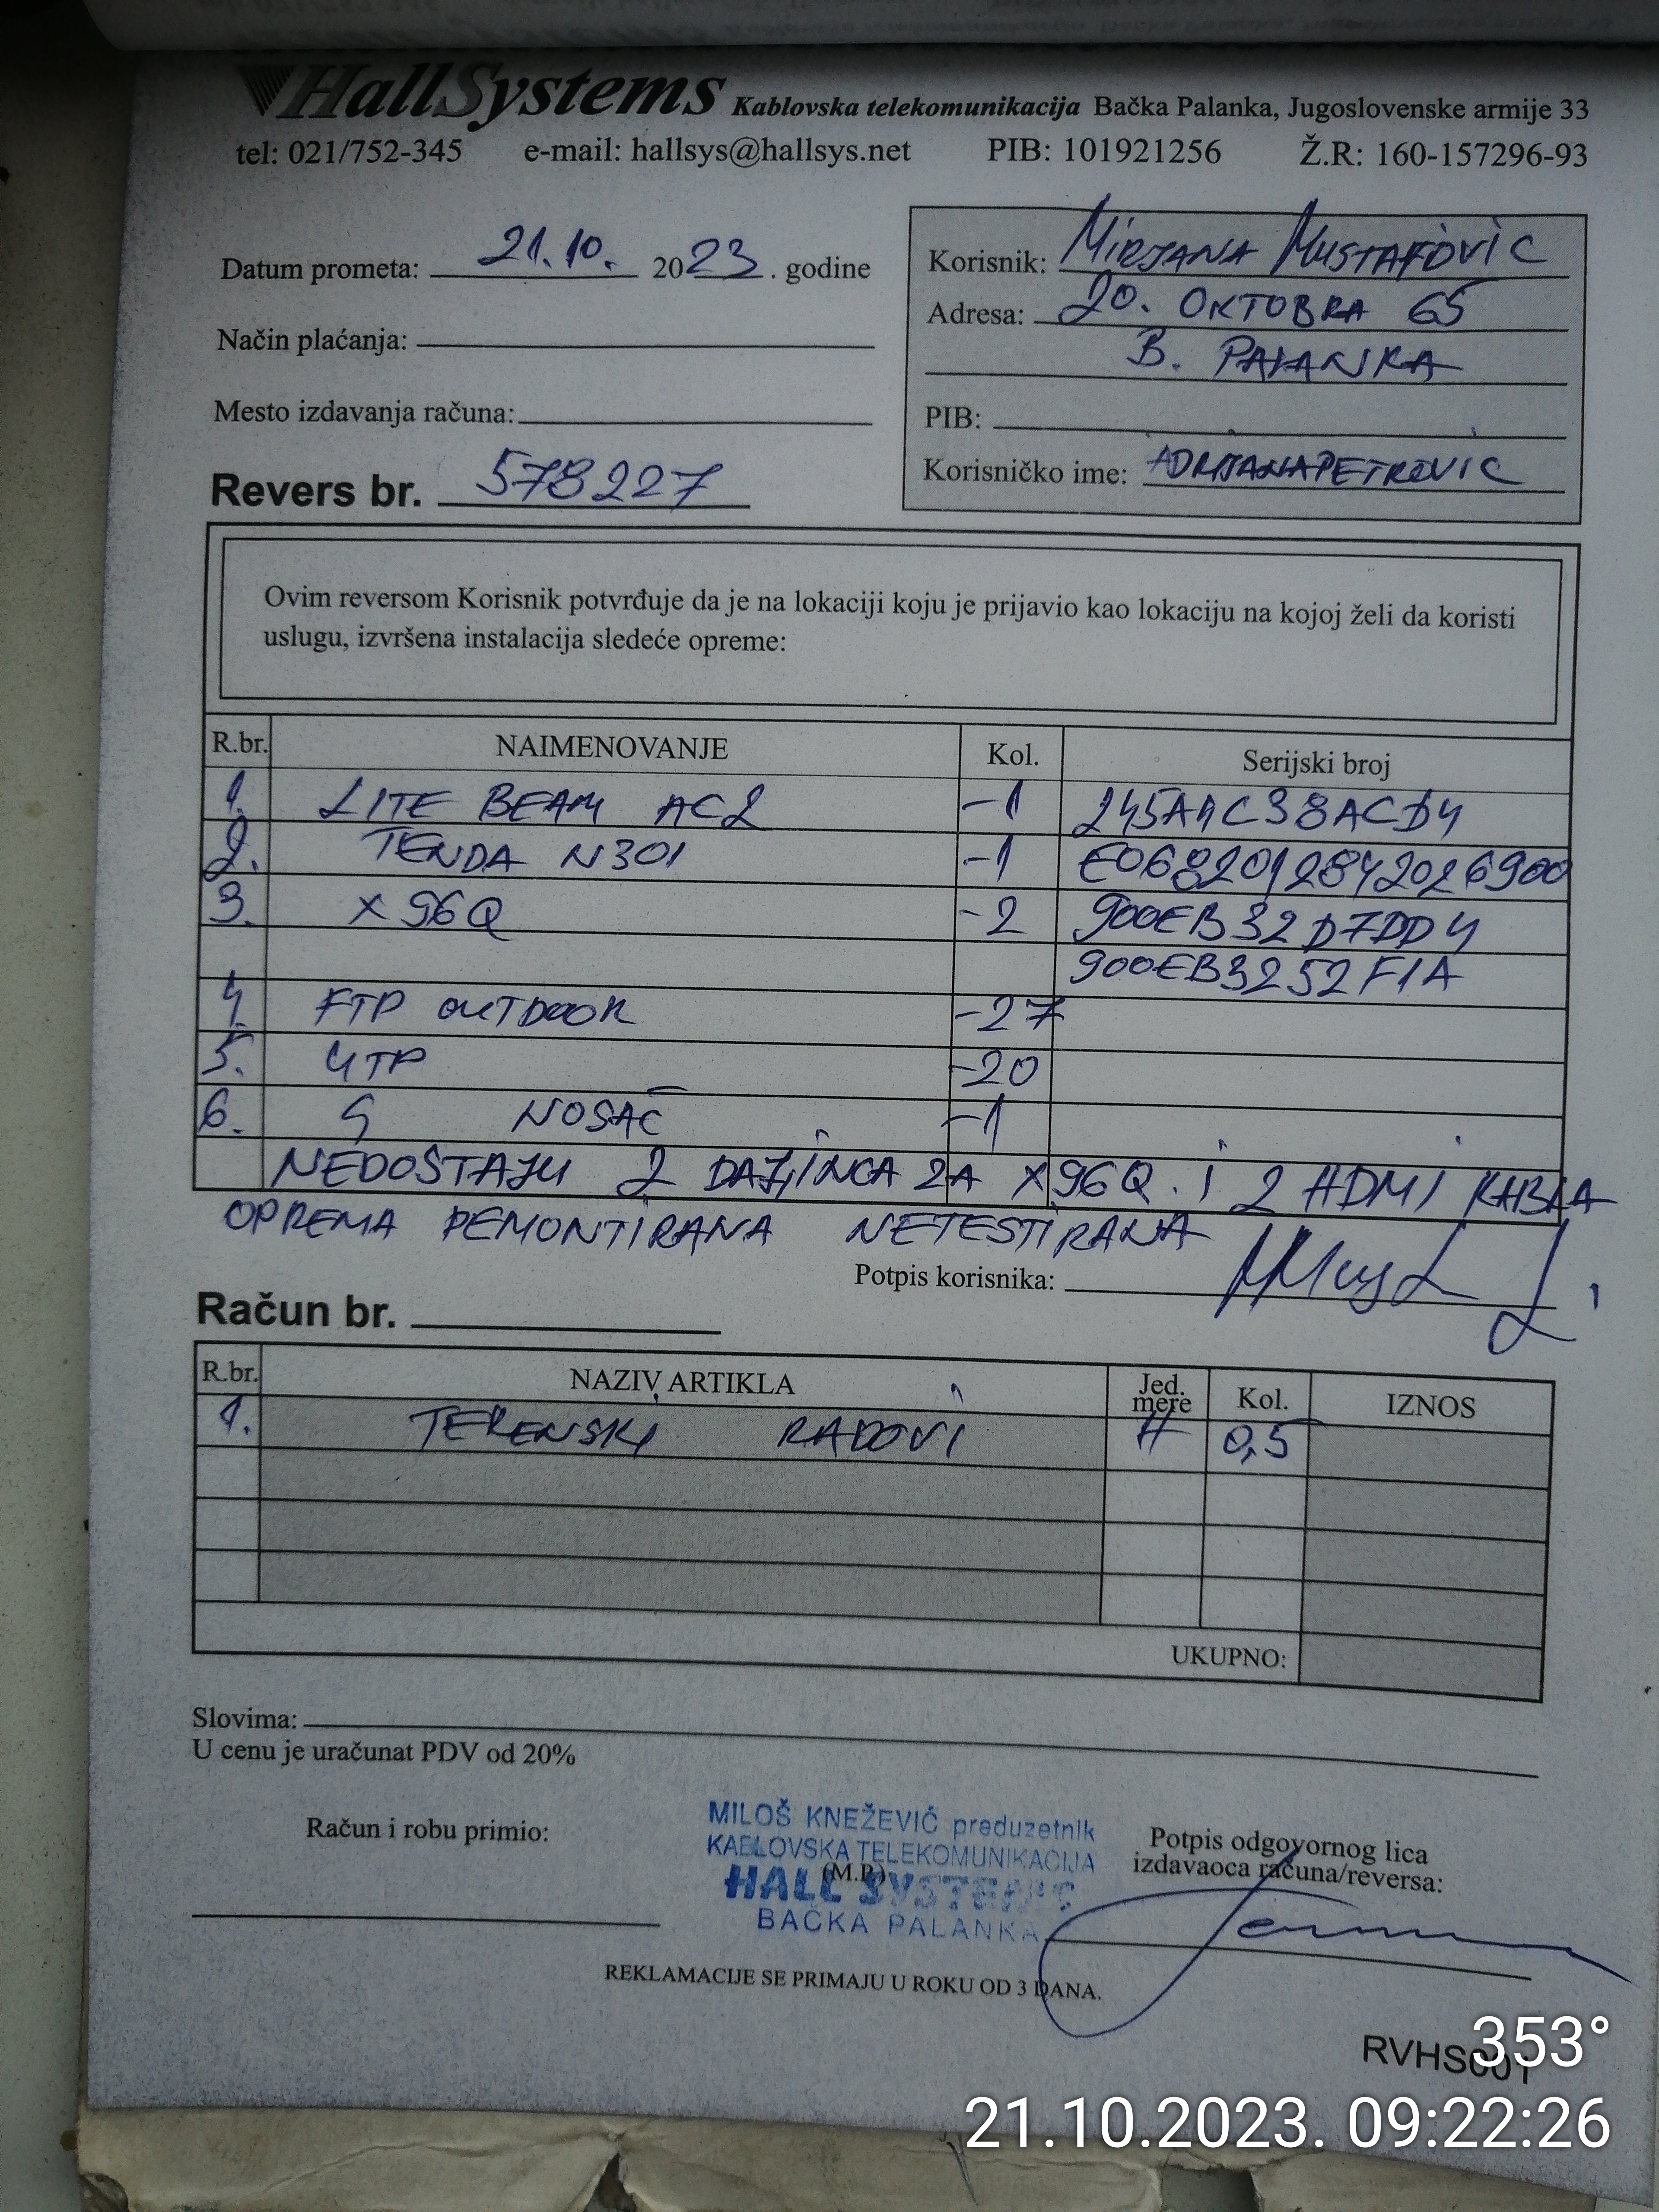 HallSystems Kablovska telekomunikacija Bačka Palanka, Jugoslovenske armije 33
tel: 021/752-345 e-mail: hallsys@hallsys.net PIB: 101921256 Ž.R: 160-157296-93
Datum prometa: 21.10. 2023. godine
Način plaćanja:
Mesto izdavanja računa:
Revers br. 578227
Korisnik: MIRJANA MUSTAFOVIC
Adresa: 20. OKTOBRA 65
B. PALANKA
PIB:
Korisničko ime: ADRIJANAPETROVIC
Ovim reversom Korisnik potvrđuje da je na lokaciji koju je prijavio kao lokaciju na kojoj želi da koristi
uslugu, izvršena instalacija sledeće opreme:
R.br. NAIMENOVANJE Kol. Serijski broj
1. LITE BEAM AC2 -1 245A4C38ACD4
2. TENDA N301 -1 E0682012842026900
3. X96Q -2 900EB32D7DD4
900EB3252F1A
4. FTP OUTDOOR -27
5. UTP -20
6. G NOSAČ -1
NEDOSTAJU 2 DALJINCA ZA X96Q. i 2 HDMI KABLA
OPREMA DEMONTIRANA NETESTIRANA
Potpis korisnika:
Račun br.
R.br. NAZIV ARTIKLA Jed. mere Kol. IZNOS
1. TERENSKI RADOVI H 0,5
UKUPNO:
Slovima:
U cenu je uračunat PDV od 20%
Račun i robu primio:
MILOŠ KNEŽEVIĆ preduzetnik
KABLOVSKA TELEKOMUNIKACIJA
(M.P.)
HALL SYSTEMS
BAČKA PALANKA
Potpis odgovornog lica
izdavaoca računa/reversa:
REKLAMACIJE SE PRIMAJU U ROKU OD 3 DANA.
RVHS001
353°
21.10.2023. 09:22:26